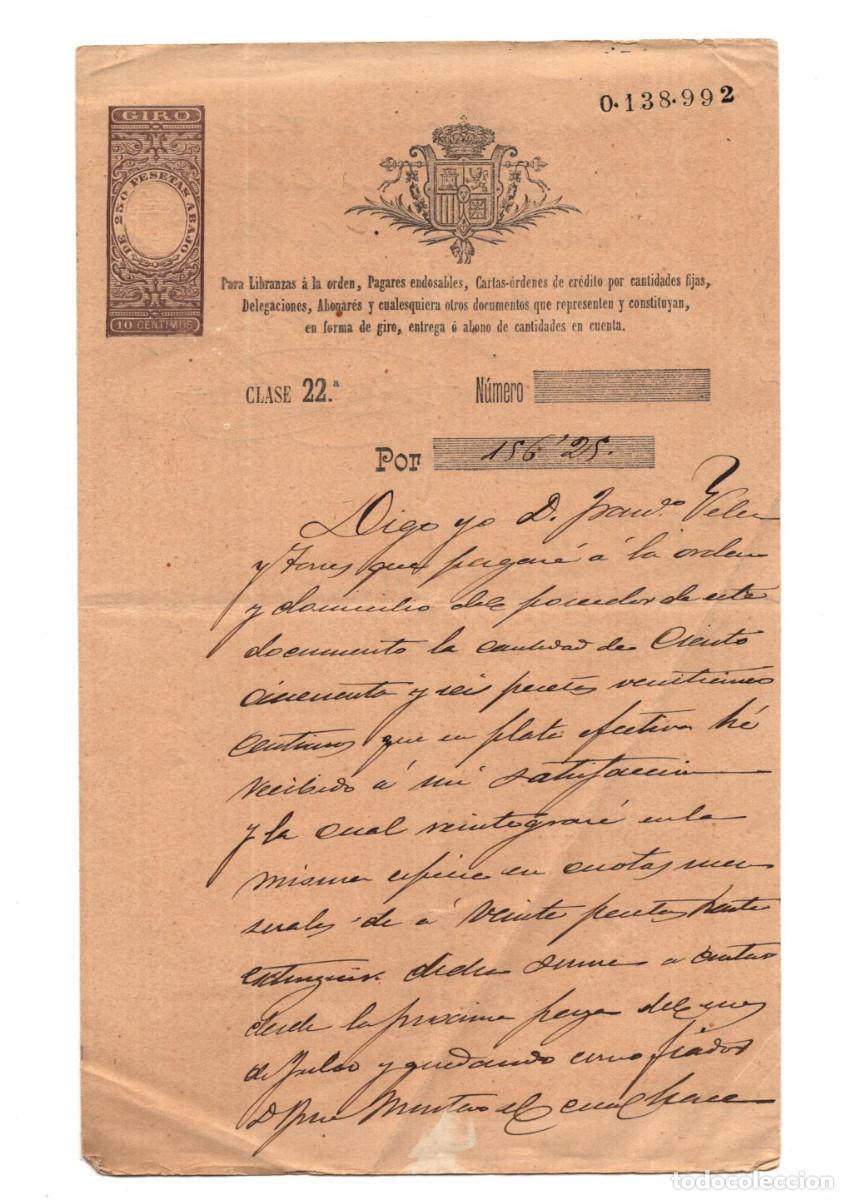 0.138.992
GIRO
DE 250 PESETAS ABAJO
10 CENTIMOS
Para Libranzas á la orden, Pagares endosables, Cartas-órdenes de crédito por cantidades fijas,
Delegaciones, Abonarés y cualesquiera otros documentos que representen y constituyan,
en forma de giro, entrega ó abono de cantidades en cuenta.
CLASE 22.ª Número
Por 156'25.
Digo yo D. Franco. Velez
y Torres que pagaré á la orden
y domicilio del poseedor de este
documento la cantidad de Ciento
cincuenta y seis pesetas veinticinco
centimos que en plata efectiva hé
recibido á mi satisfaccion
y la cual reintegraré en la
misma especie en cuotas men
suales de á veinte pesetas hasta
extinguir dicha suma a contar
desde la proxima paga del mes
de Julio y quedando como fiador
D. el cual hace
todocoleccion